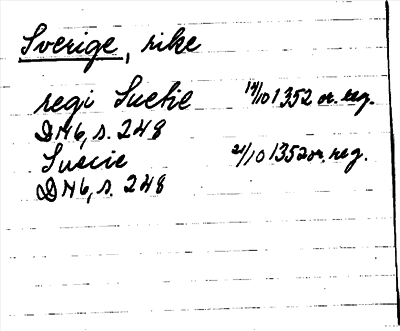 Sverige, rike
regi Suetie 19/10 1352 or. reg.
DN6, s. 248
Suecie 21/10 1352 or. reg.
DN6, s. 248